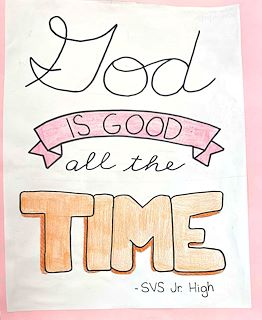 God
IS GOOD
all the
TIME
-SVS Jr. High